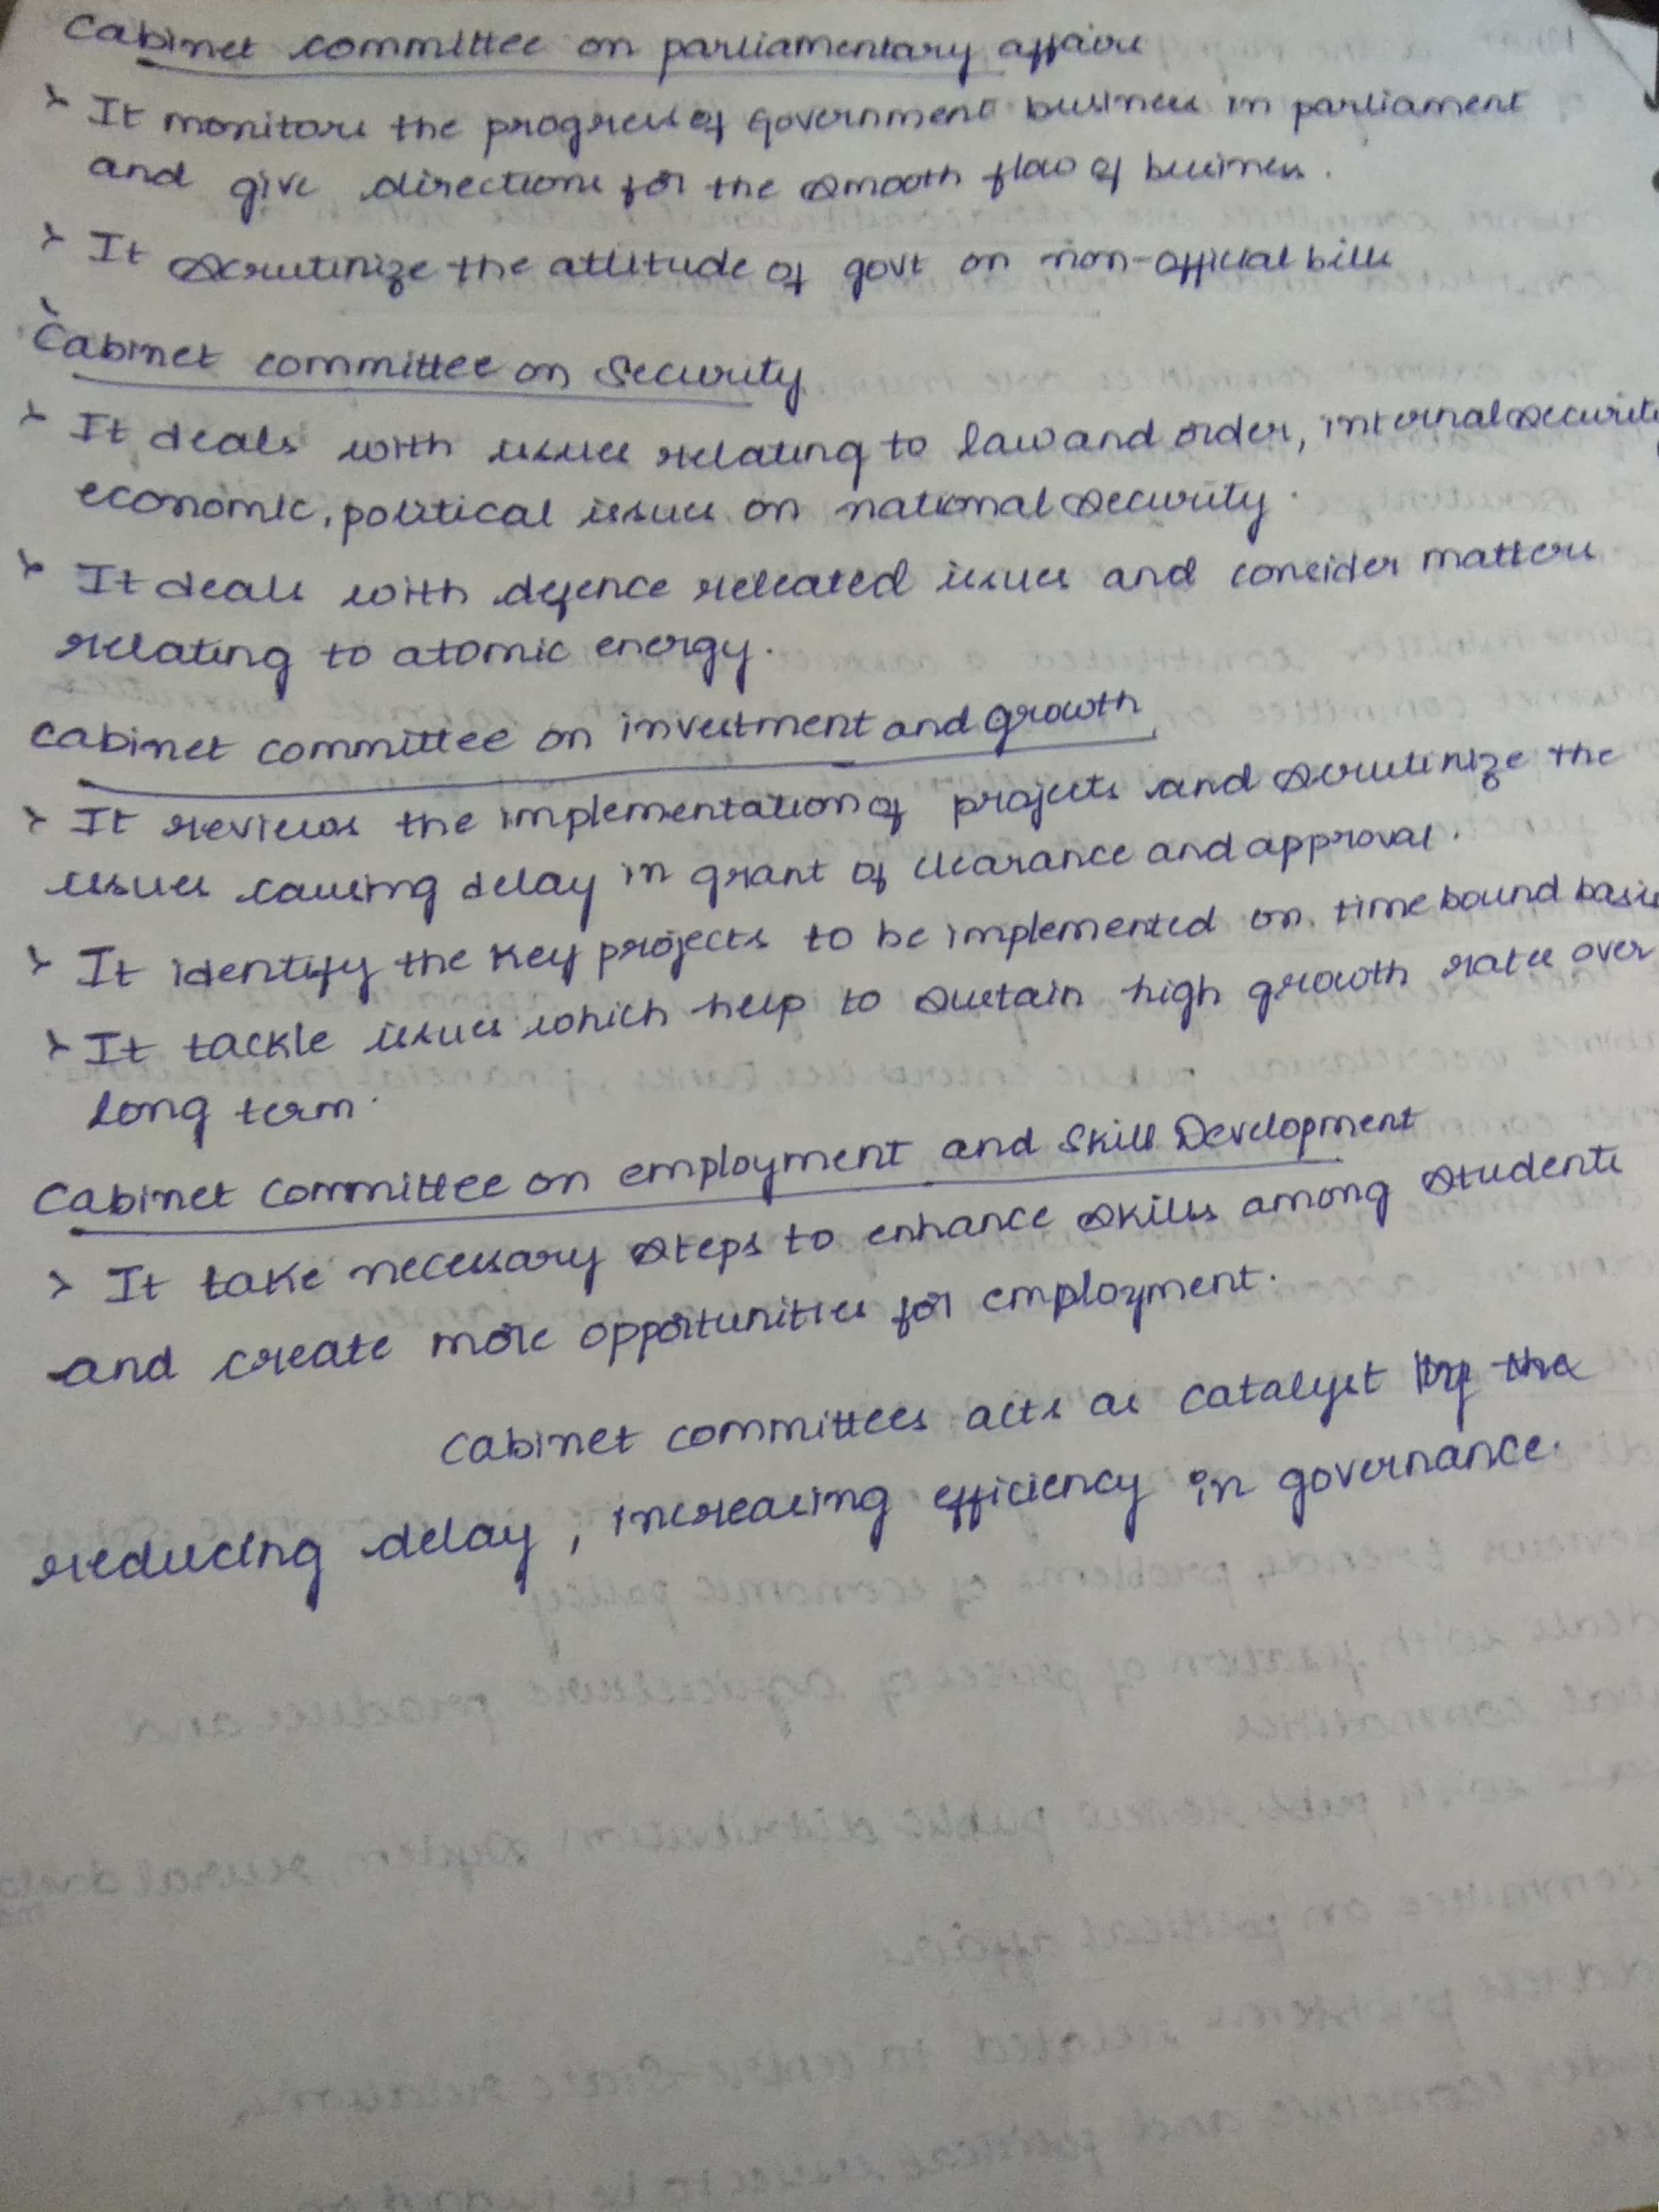 Cabinet committee on parliamentary affairs
> It monitors the progress of government business in parliament
and give directions for the smooth flow of business.
> It scrutinize the attitude of govt on non-official bills
Cabinet committee on Security
> It deals with issues relating to law and order, internal security
economic, political issues on national security.
> It deals with defence releated issues and consider matters
relating to atomic energy.
Cabinet committee on investment and growth
> It reviews the implementation of projects and scrutinize the
issues causing delay in grant of clearance and approval.
> It identify the key projects to be implemented on time bound basis
> It tackle issues which help to sustain high growth rates over
long term.
Cabinet committee on employment and Skill Development
> It take necessary steps to enhance skills among students
and create more opportunities for employment.
Cabinet committees acts as catalyst the
reducing delay, increasing efficiency in governance.